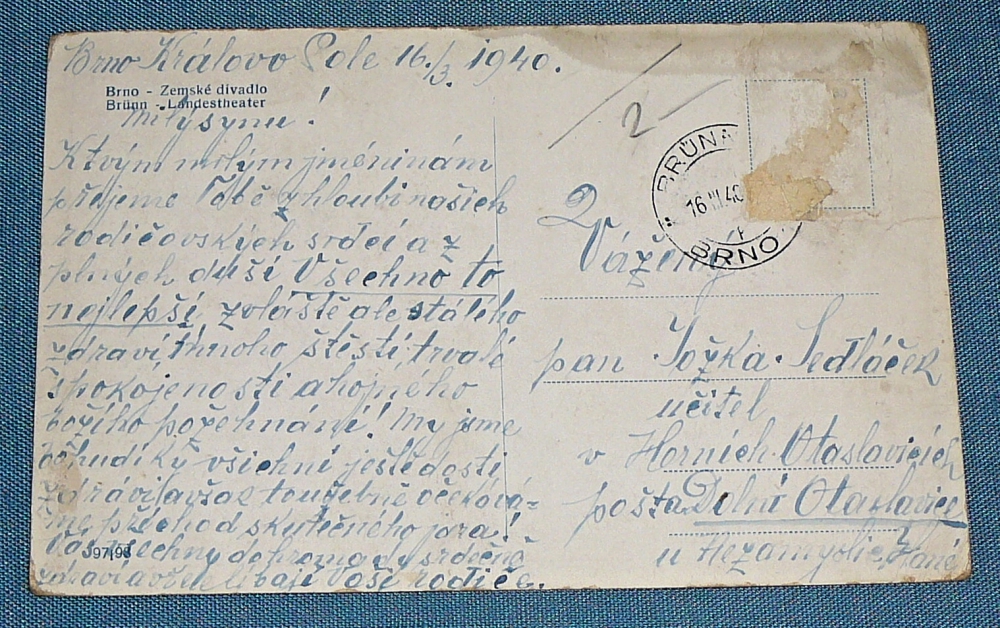 Brno Královo Pole 16./3. 1940.
Brno - Zemské divadlo
Brünn - Landestheater
Milý synu!
K tvým milým jmeninám
přejeme Tobě z hloubi našich
rodičovských srdcí a z
plných duší Všechno to
nejlepší zvláště ale stálého
zdraví, mnoho štěstí, trvalé
spokojenosti a hojného
božího požehnání! My jsme
bohudíky všichni ještě dosti
zdrávi, avšak toužebně očeková-
me příchod skutečného jara!
Vás všechny dohromady srdečně
zdraví a líbají Vaši rodiče.
97198
2
BRÜNN
16 III 40
BRNO
Vážený
pan Jožka Sedláček
učitel
v Horních Otaslavicích
pošta Dolní Otaslavice
u Nezamyslic, Hané